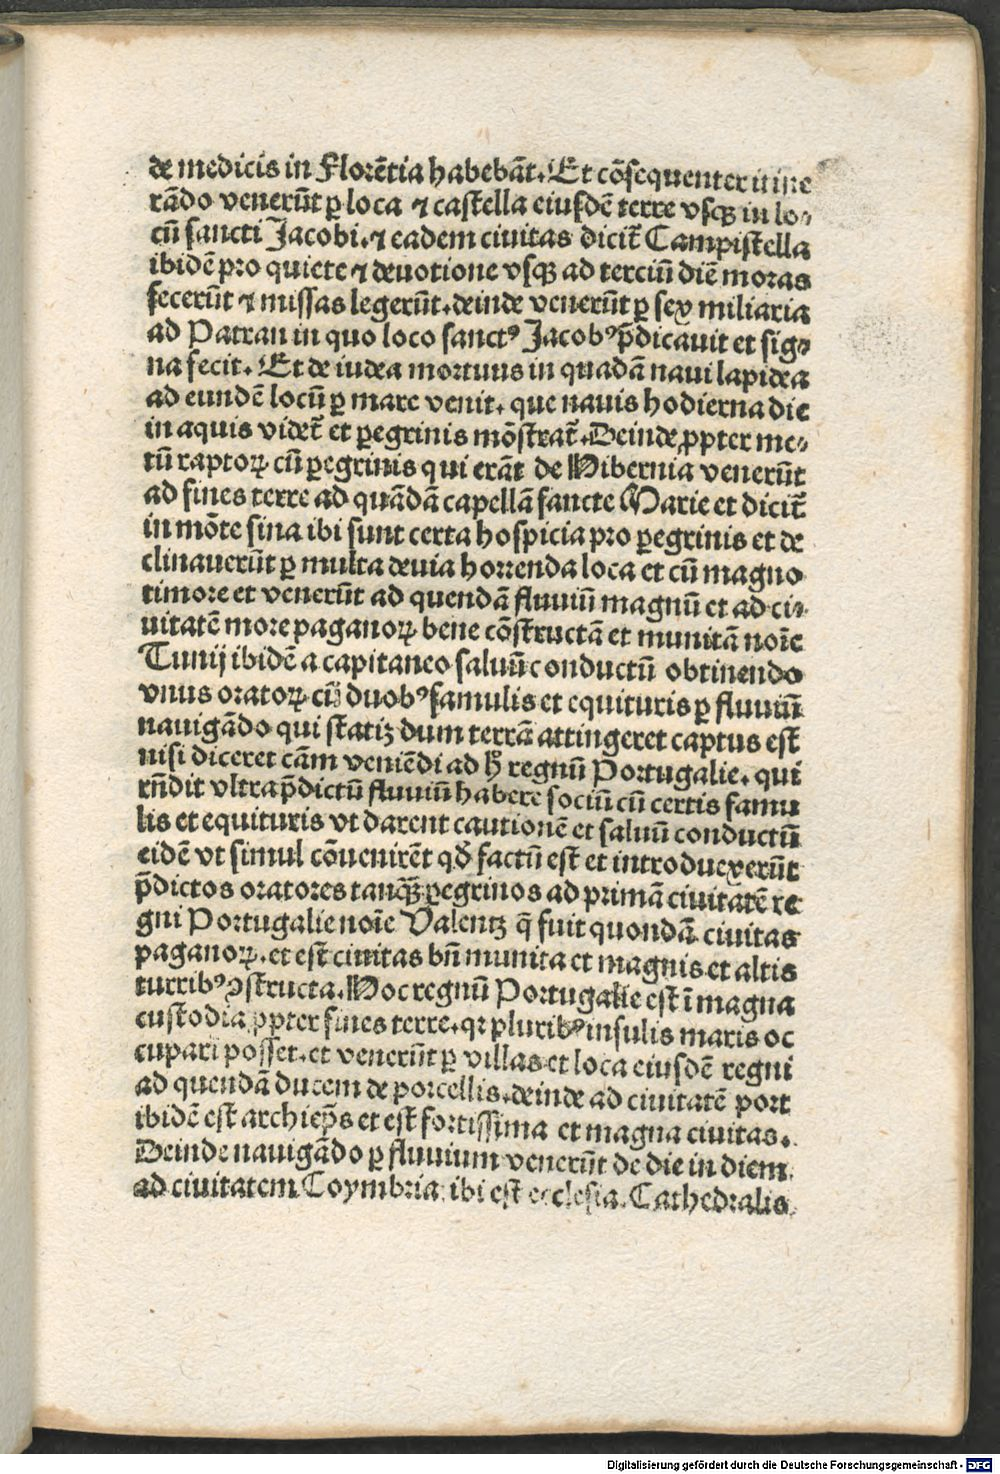 de medicis in Florētia habebāt. Et cōsequenter itine
rādo venerūt ꝑ loca ⁊ castella eiusdē terre vsqꝫ in lo⸗
cū sancti Jacobi. ⁊ eadem ciuitas dicit̄ Campistella
ibidē pro quiete ⁊ deuotione vsqꝫ ad terciū diē moras
fecerūt ⁊ missas legerūt. deinde venerūt ꝑ sex miliaria
ad Patran in quo loco sanctꝰ Jacobꝰ p̄dicauit et sig⸗
na fecit. Et de iudea mortuus in quadā naui lapidea
ad eundē locū ꝑ mare venit. que nauis hodierna die
in aquis videt̄ et ꝑegrinis mōstrat̄. Deinde ꝓpter me⸗
tū raptoꝝ cū ꝑegrinis qui erāt de Hibernia venerūt
ad fines terre ad quādā capellā sancte Marie et dicit̄
in mōte sina ibi sunt certa hospicia pro ꝑegrinis et de
clinauerūt ꝑ multa deuia horrenda loca et cū magno
timore et venerūt ad quendā fluuiū magnū et ad ci⸗
uitatē more paganoꝝ bene cōstructā et munitā noīe
Tunij ibidē a capitaneo saluū conductū obtinendo
vnus oratoꝝ cū duobꝰ famulis et equituris ꝑ fluuiū
nauigādo qui statiꝫ dum terrā attingeret captus est
nisi diceret cām veniēdi ad h̄ regnū Portugalie. qui
rn̄dit vltra p̄dictū fluuiū habere sociū cū certis famu
lis et equituris vt darent cautionē et saluū conductū
eidē vt simul cōuenirēt qđ factū est et introduxerūt
p̄dictos oratores tanqꝫ ꝑegrinos ad primā ciuitatē re
gni Portugalie noīe Valentꝫ q̄ fuit quondā ciuitas
paganoꝝ. et est ciuitas bn̄ munita et magnis et altis
turribꝰ ꝯstructa. Hoc regnū Portugalie est ī magna
custodia ꝓpter fines terre. qꝛ pluribꝰ insulis maris oc
cupari posset. et venerūt ꝑ villas et loca eiusdē regni
ad quendā ducem de porcellis. deinde ad ciuitatē port
ibidē est archiep̄s et est fortissima et magna ciuitas.
Deinde nauigādo ꝑ fluuium venerūt de die in diem
ad ciuitatem Coymbria. ibi est ecclesia. Cathedralis.
Digitalisierung gefördert durch die Deutsche Forschungsgemeinschaft - DFG